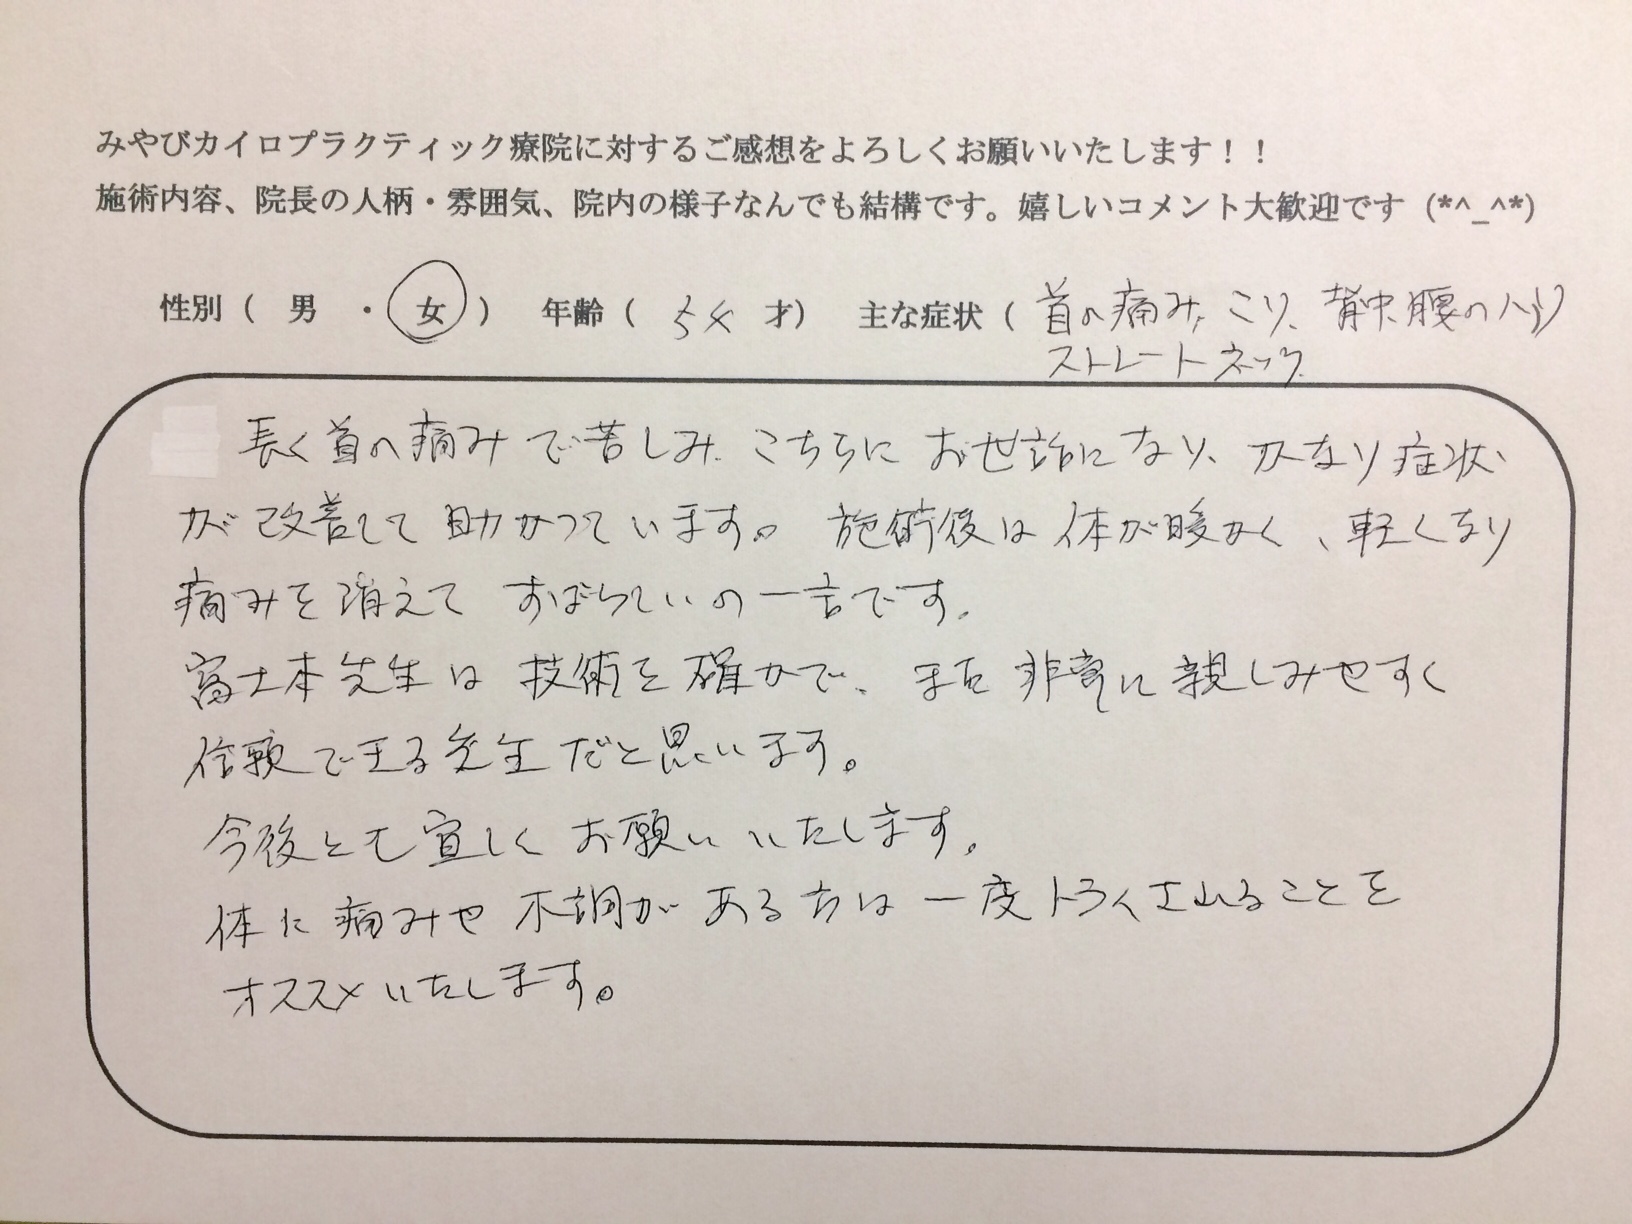 みやびカイロプラクティック療院に対するご感想をよろしくお願いいたします！！
施術内容、院長の人柄・雰囲気、院内の様子なんでも結構です。嬉しいコメント大歓迎です（*^_^*）
性別（ 男 ・ 女 ） 年齢（ 54 才） 主な症状（ 首の痛み、こり、背中、腰のハリ
ストレートネック
長く首の痛みで苦しみ、こちらにお世話になり、かなり症状
が改善して助かっています。施術後は体が暖かく、軽くなり
痛みも消えて すばらしいの一言です。
富士本先生は技術も確かで、また非常に親しみやすく
信頼できる先生だと思います。
今後とも宜しくお願いいたします。
体に痛みや不調がある方は一度トライされることを
オススメいたします。